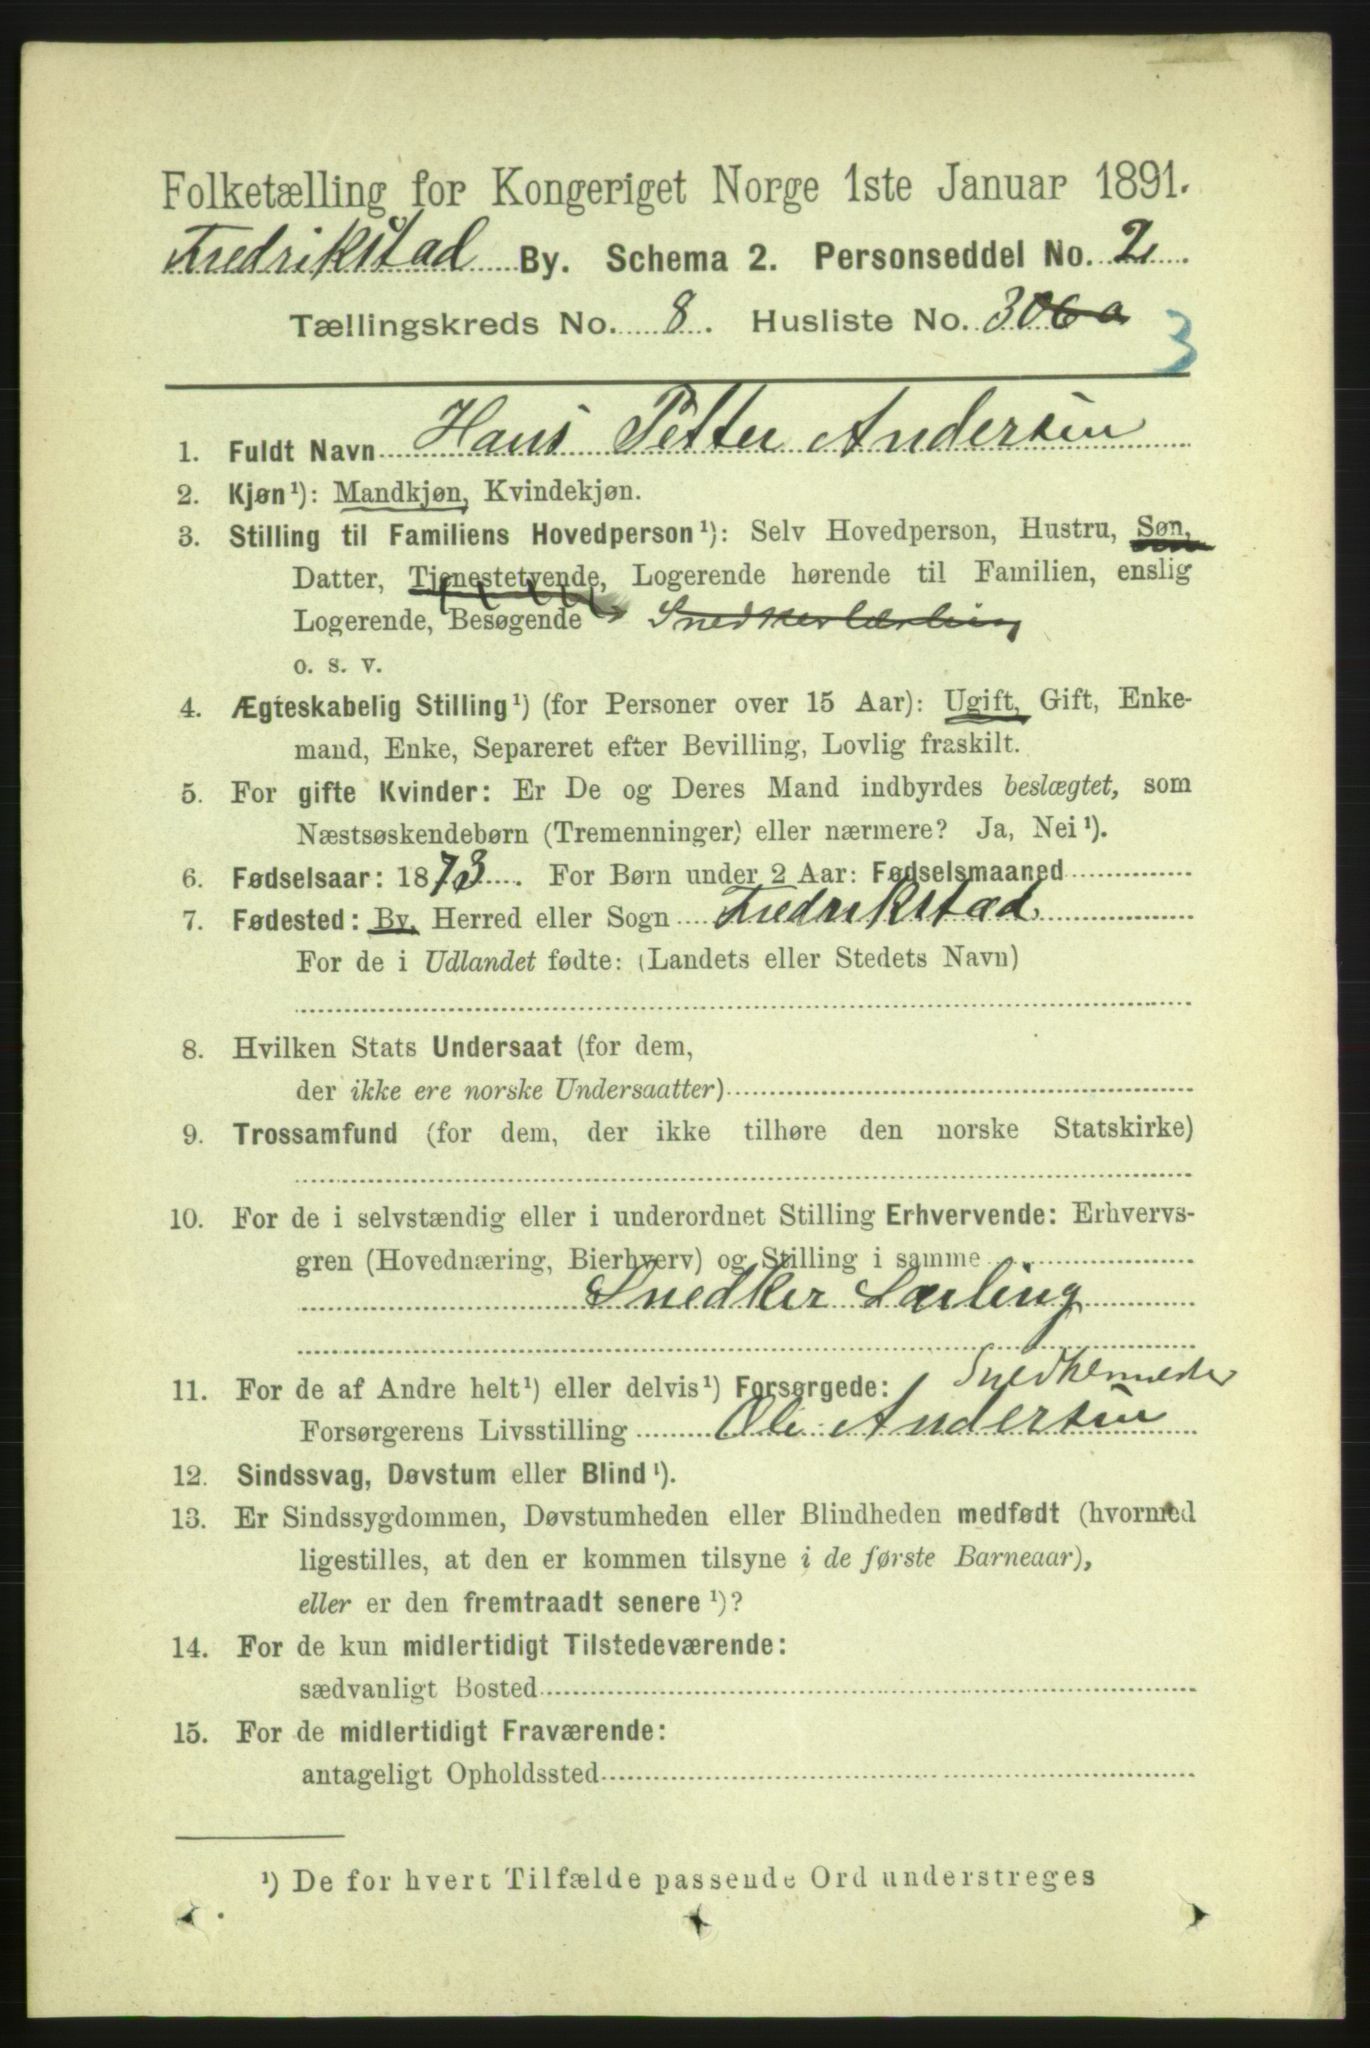 Folketælling for Kongeriget Norge 1ste Januar 1891.
Fredrikstad By. Schema 2. Personseddel No. 2
Tællingskreds No. 8. Husliste No. 306a
3
1. Fuldt Navn Hans Petter Andersen
2. Kjøn¹): Mandkjøn, Kvindekjøn.
3. Stilling til Familiens Hovedperson¹): Selv Hovedperson, Hustru, Søn,
Datter, Tjenestetyende, Logerende hørende til Familien, enslig
Logerende, Besøgende Snedkerlærling
o. s. v.
4. Ægteskabelig Stilling¹) (for Personer over 15 Aar): Ugift, Gift, Enke-
mand, Enke, Separeret efter Bevilling, Lovlig fraskilt.
5. For gifte Kvinder: Er De og Deres Mand indbyrdes beslægtet, som
Næstsøskendebørn (Tremenninger) eller nærmere? Ja, Nei¹).
6. Fødselsaar: 1873. For Børn under 2 Aar: Fødselsmaaned
7. Fødested: By, Herred eller Sogn Fredrikstad
For de i Udlandet fødte: (Landets eller Stedets Navn)
8. Hvilken Stats Undersaat (for dem,
der ikke ere norske Undersaatter)
9. Trossamfund (for dem, der ikke tilhøre den norske Statskirke)
10. For de i selvstændig eller i underordnet Stilling Erhvervende: Erhvervs-
gren (Hovednæring, Bierhverv) og Stilling i samme
Snedker Lærling
Snedkermester
11. For de af Andre helt¹) eller delvis¹) Forsørgede:
Forsørgerens Livsstilling Ole Andersen
12. Sindssvag, Døvstum eller Blind¹).
13. Er Sindssygdommen, Døvstumheden eller Blindheden medfødt (hvormed
ligestilles, at den er kommen tilsyne i de første Barneaar),
eller er den fremtraadt senere¹)?
14. For de kun midlertidigt Tilstedeværende:
sædvanligt Bosted
15. For de midlertidigt Fraværende:
antageligt Opholdssted
¹) De for hvert Tilfælde passende Ord understreges